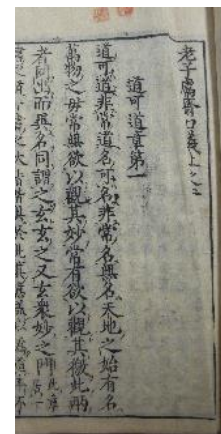 老子鬳齋口義上之
道可道章第一
道可道非常道名可名非常名無名天地之始有名
萬物之母常無欲以觀其妙常有欲以觀其徼此兩
者同出而異名同謂之玄玄之又玄衆妙之門此章